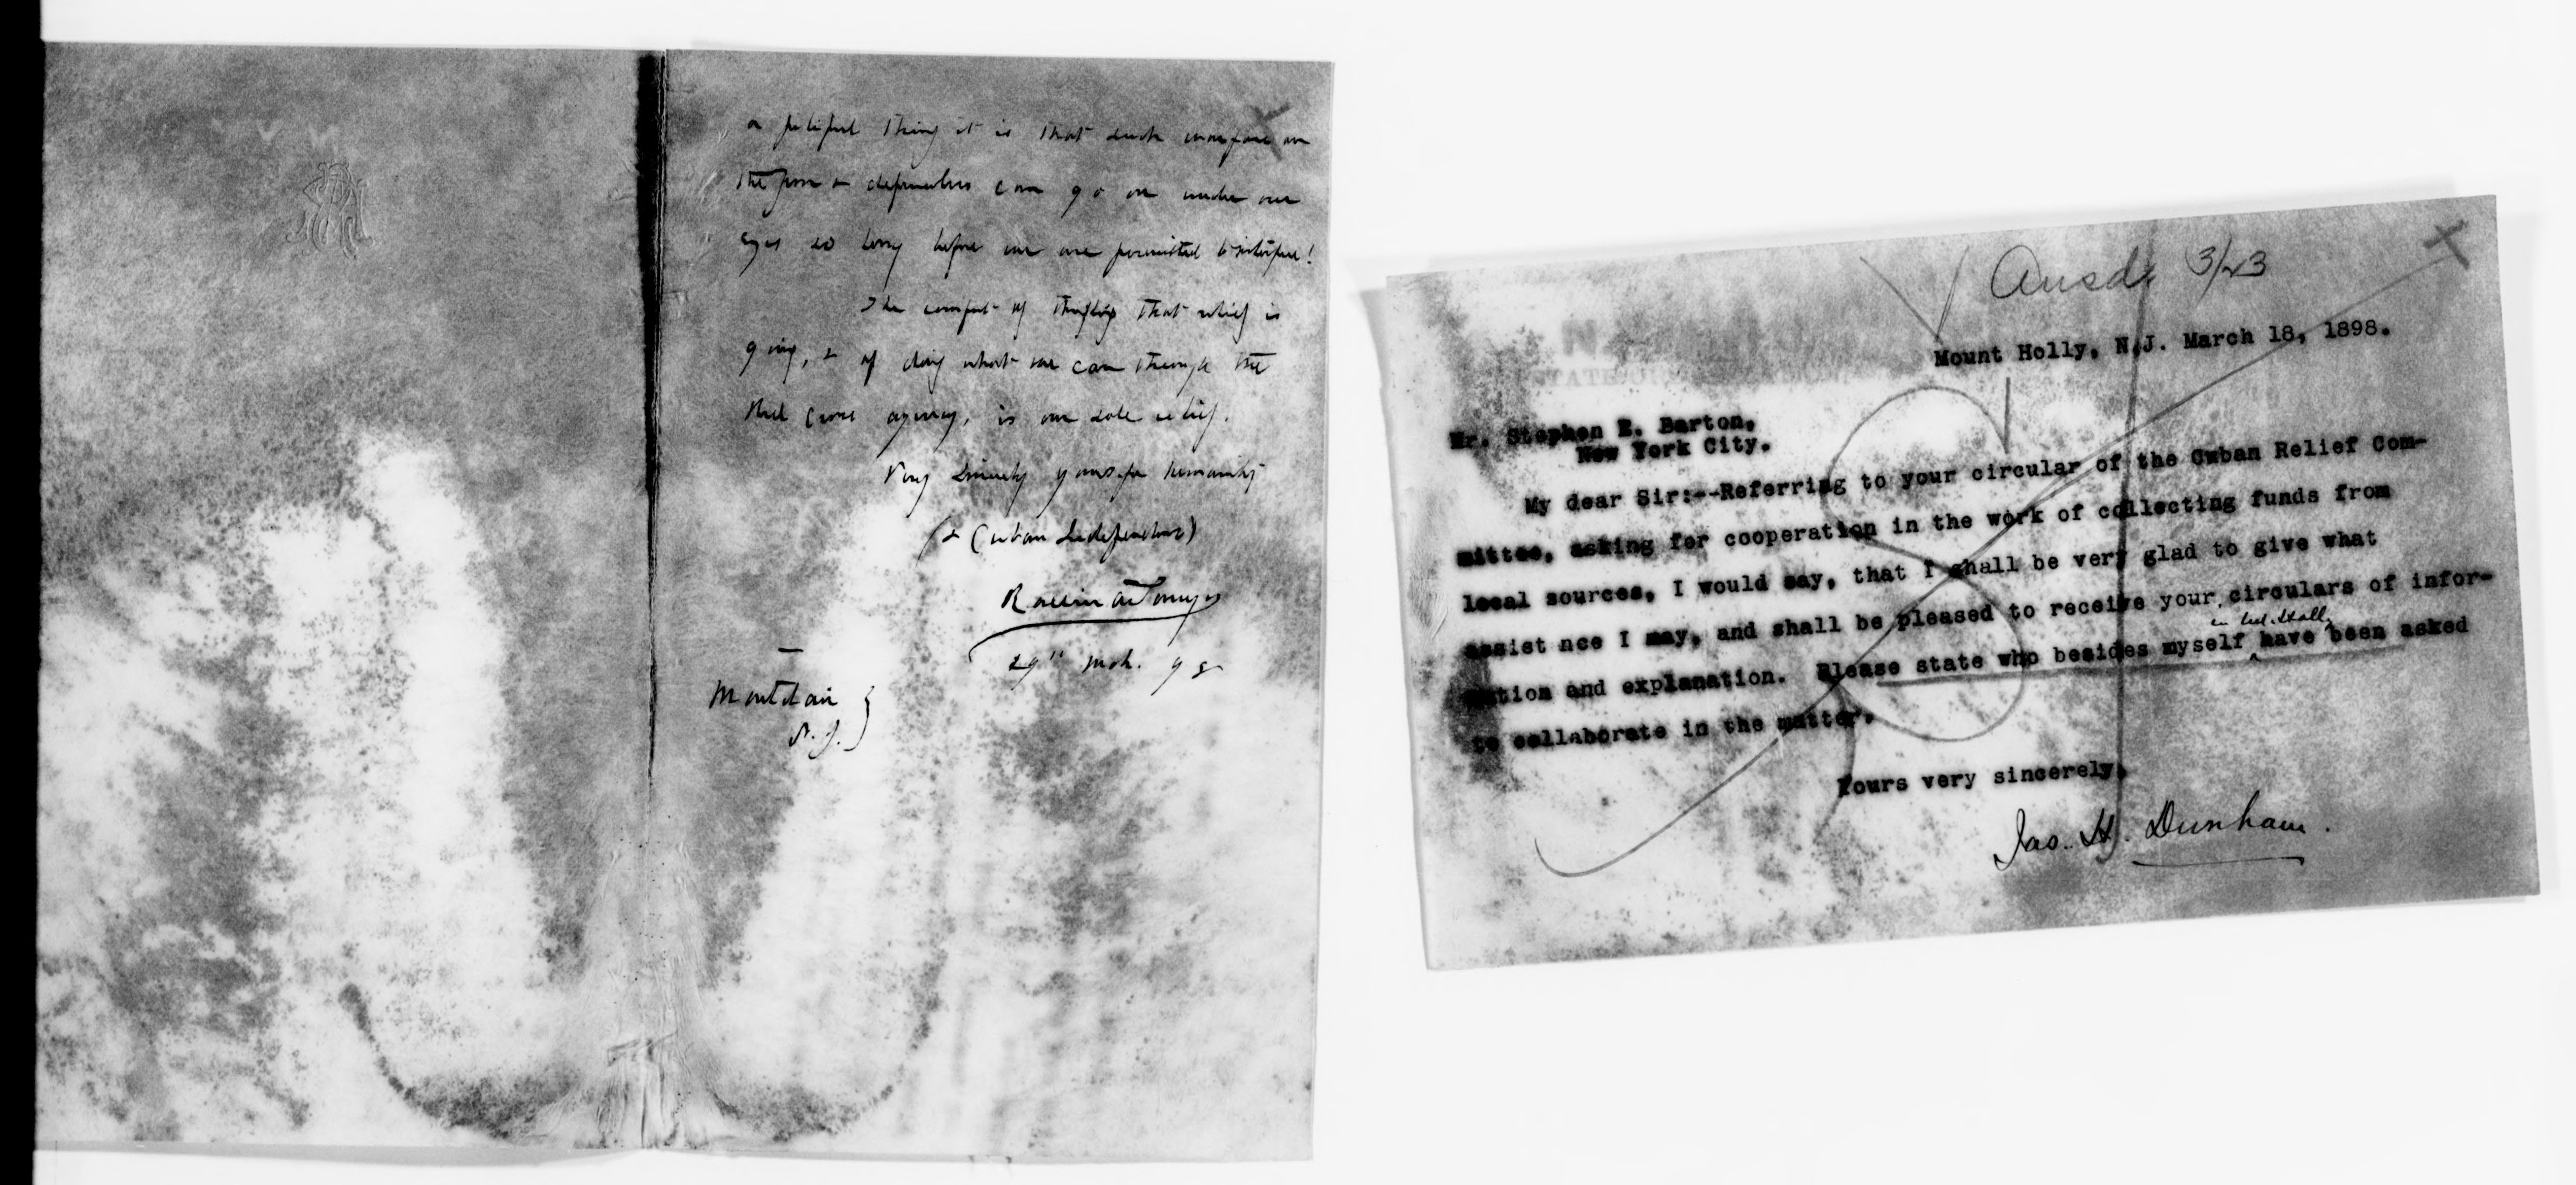 a pitiful thing it is that such warfare on
the poor & defenceless can go on under our
eyes so long before we are permitted to interfere!
The comfort of thinking that relief is
going, & of doing what we can through the
Red Cross agency, is our sole relief.
Very sincerely yours for humanity
(& Cuban Independence)
29" Mch. 98
Montclair
N.J.
Ansd. 3/23
Mount Holly, N.J. March 18, 1898.
Mr. Stephen E. Barton,
New York City.
My dear Sir:--Referring to your circular of the Cuban Relief Com-
mittee, asking for cooperation in the work of collecting funds from
local sources, I would say, that I shall be very glad to give what
assist nce I may, and shall be pleased to receive your circulars of infor-
mation and explanation. Please state who besides myself have been asked
to collaborate in the matter.
Yours very sincerely,
Jas. H. Dunham.